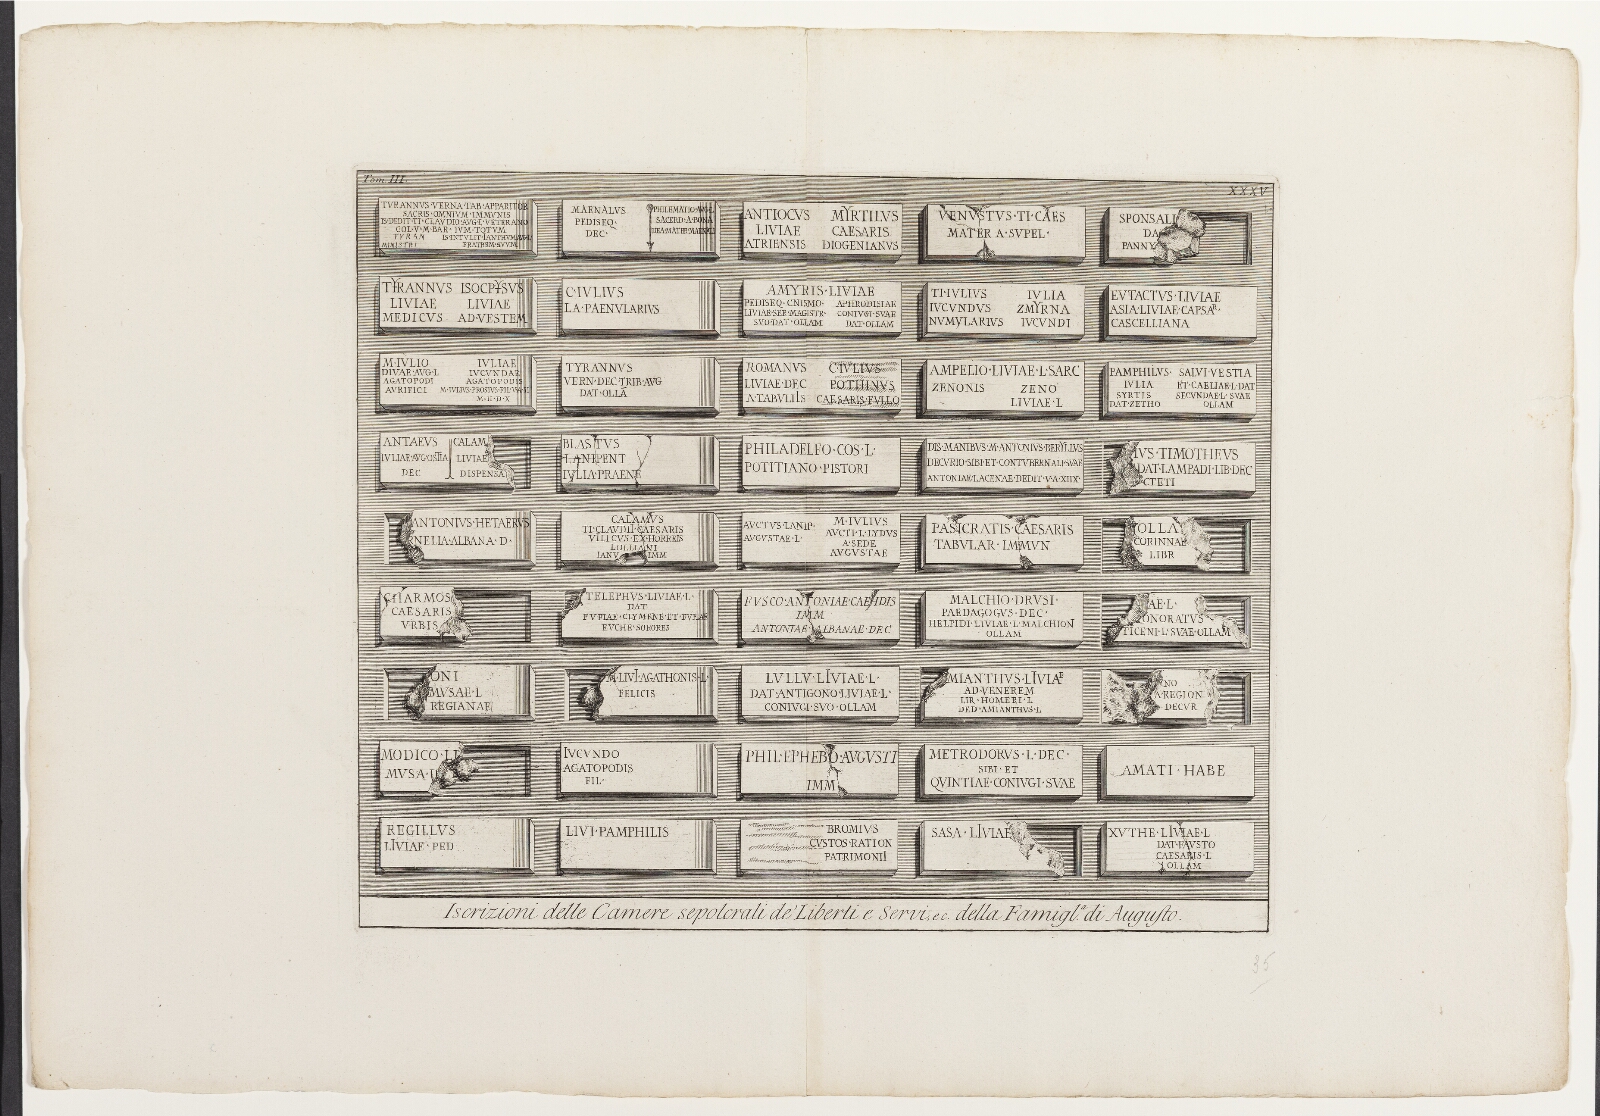 Tom. III.
XXXV
TVRANNVS·VERNA·TAB·APPARITOR
SACRIS·OMNIVM·IMMVNIS
IS·DEDIT·TI·CLAVDIO·AVG·L·VETERANO
MINISTRI
FRATREM·SVVM
MAENALVS
PEDISEQ·
DEC·
PHILEMATIO·AVG·L
SACERD·A·BONA
DEA·MATER·MAENALI
ANTIOCVS MYRTILVS
LIVIAE CAESARIS
ATRIENSIS DIOGENIANVS
VENVSTVS·TI·CAES
MATER A·SVPEL·
SPONSALI
DA
PANNY
TYRANNVS ISOCPYSVS
LIVIAE LIVIAE
MEDICVS AD·VESTEM
C·IVLIVS
LA·PAENVLARIVS
AMYRIS·LIVIAE
PEDISEQ·CNISMO· APHRODISIAE
LIVIAE·SER·MAGISTR· CONIVGI·SVAE
SVO·DAT·OLLAM DAT·OLLAM
TI·IVLIVS IVLIA
IVCVNDVS ZMYRNA
NVMVLARIVS IVCVNDI
EVTACTVS·LIVIAE
ASIA·LIVIAE·CAPSAR·
CASCELLIANA
M·IVLIO IVLIAE
DIVAE·AVG·L IVCVNDAE
AGATOPODI AGATOPODIS
AVRIFICI
M·E·D·X
TYRANNVS
VERN·DEC·TRIB·AVG
DAT·OLLA
ROMANVS C·IVLIVS
LIVIAE·DEC POTHINVS
A·TABVLIIS CAESARIS·FVLLO
AMPELIO·LIVIAE·L·SARC
ZENONIS ZENO
LIVIAE·L
PAMPHILVS· SALVI·VESTIA
IVLIA ET·CAELIAE·L·DAT
SYRTIS SECVNDAE·L·SVAE
DAT·ZETHO OLLAM
ANTAEVS CALAM
IVLIAE·AVG·OSTIA LIVIAE
DEC DISPENSA
BLASTVS
LANIPENT
IVLIA·PRAENE
PHILADELFO·COS·L·
POTITIANO·PISTORI
DIS·MANIBVS·M·ANTONIVS·BERYLIVS
DECVRIO·SIBI·ET·CONTVBERNALI·SVAE
ANTONIAE·LACENAE·DEDIT·V·A·XIIX·
IVS·TIMOTHEVS
DAT·LAMPADI·LIB·DEC
CTETI
ANTONIVS·HETAERVS
NELIA·ALBANA·D·
CALAMVS
TI·CLAVDII·CAESARIS
VILICVS·EX·HORREIS
LOLLIANI
IANV IMM
AVCTVS·LANIP· M·IVLIVS
AVGVSTAE·L· AVCTI·L·LYDVS
A·SEDE
AVGVSTAE
PASICRATIS·CAESARIS
TABVLAR·IMMVN
OLLA
CORINNAE
LIBR
CHARMOS
CAESARIS
VRBIS
TELEPHVS·LIVIAE·L·
DAT
EVCHE·SORORES
FVSCO·ANTONIAE·CAENDIS
IMM
ANTONIAE·ALBANAE·DEC
MALCHIO·DRVSI·
PAEDAGOGVS·DEC·
HELPIDI·LIVIAE·L·MALCHION
OLLAM
AE·L·
ONORATVS
TICENI·L·SVAE·OLLAM
ONI
MVSAE·L
REGIANAE
M·LIVI·AGATHONIS·L·
FELICIS
LVLLV·LIVIAE·L·
DAT·ANTIGONO·LIVIAE·L·
CONIVGI·SVO·OLLAM
MIANTHVS·LIVIAE
AD·VENEREM
LIB·HOMERI·L
DED·AMIANTHVS·L
NO
A·REGION
DECVR
MODICO·LI
MVSA·
IVCVNDO
AGATOPODIS
FIL·
PHIL·EPHEBO·AVGVSTI
IMM
METRODORVS·L·DEC·
SIBI·ET
QVINTIAE·CONIVGI·SVAE
AMATI·HABE
REGILLVS
LIVIAE·PED
LIVI·PAMPHILIS
BROMIVS
CVSTOS·RATION
PATRIMONII
SASA·LIVIAE
XVTHE·LIVIAE·L
DAT·FAVSTO
CAESARIS·L
OLLAM
Iscrizioni delle Camere sepolcrali de' Liberti e Servi, ec. della Famigl.a di Augusto.
35